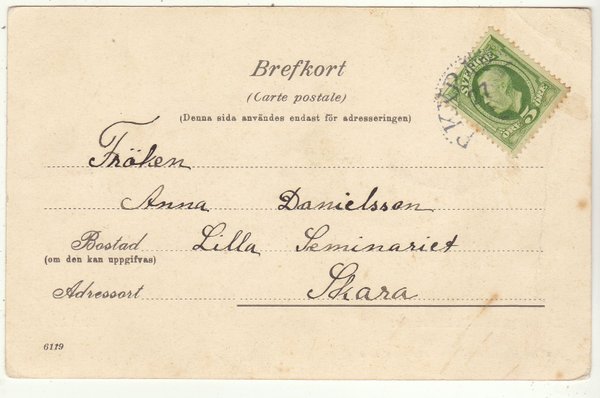 Brefkort
(Carte postale)
(Denna sida användes endast för adresseringen)
SVERIGE
5
Fröken
Anna Danielsson
Bostad Lilla Seminariet
(om den kan uppgifvas)
Adressort Skara
6119